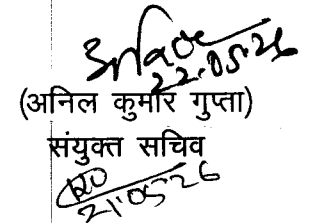 22.05.26
(अनिल कुमार गुप्ता)
संयुक्त सचिव
21.05.26